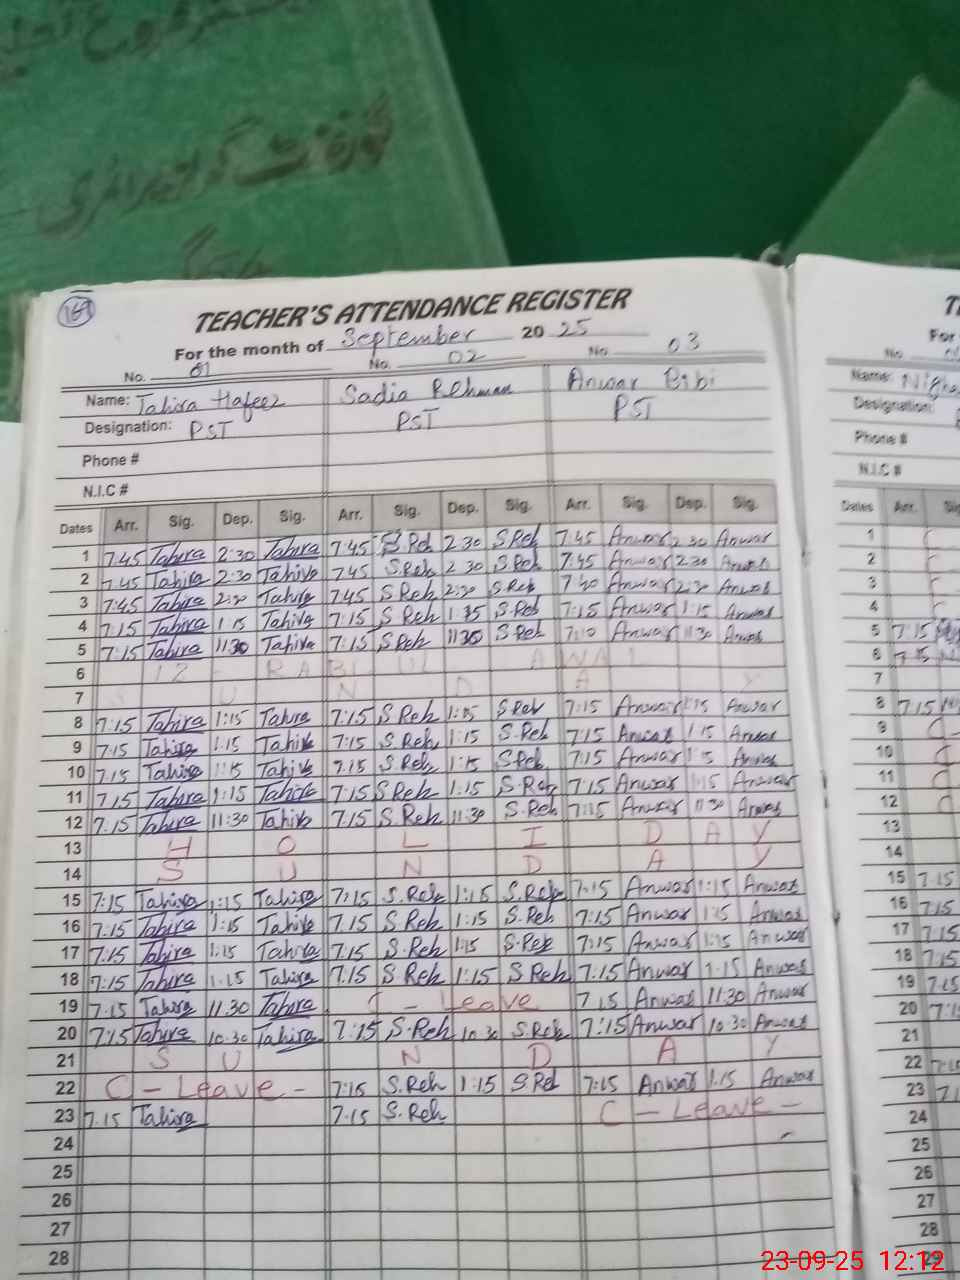 گورنمنٹ گرلز پرائمری
169
TEACHER'S ATTENDANCE REGISTER
For the month of September 2025
No. 01 No. 02 No. 03
Name: Tahira Hafeez Sadia Rehman Anwar Bibi
Designation: PST PST PST
Phone #
N.I.C #
Dates Arr. Sig. Dep. Sig. Arr. Sig. Dep. Sig. Arr. Sig. Dep. Sig.
1 7:45 Tahira 2:30 Tahira 7:45 S Reh 2:30 S Reh 7:45 Anwar 2:30 Anwar
2 7:45 Tahira 2:30 Tahira 7:45 S Reh 2:30 S.Reh 7:45 Anwar 2:30 Anwar
3 7:45 Tahira 2:30 Tahira 7:45 S Reh 2:30 S.Reh 7:40 Anwar 2:30 Anwar
4 7:15 Tahira 1:15 Tahira 7:15 S Reh 1:15 S.Reh 7:15 Anwar 1:15 Anwar
5 7:15 Tahira 11:30 Tahira 7:15 S Reh 11:30 S.Reh 7:10 Anwar 11:30 Anwar
6 12 - RABI UL AWAL
7 S U N D A Y
8 7:15 Tahira 1:15 Tahira 7:15 S Reh 1:15 S Reh 7:15 Anwar 1:15 Anwar
9 7:15 Tahira 1:15 Tahira 7:15 S.Reh 1:15 S.Reh 7:15 Anwar 1:15 Anwar
10 7:15 Tahira 1:15 Tahira 7:15 S.Reh 1:15 S.Reh 7:15 Anwar 1:15 Anwar
11 7:15 Tahira 1:15 Tahira 7:15 S.Reh 1:15 S.Reh 7:15 Anwar 1:15 Anwar
12 7:15 Tahira 11:30 Tahira 7:15 S.Reh 11:30 S.Reh 7:15 Anwar 11:30 Anwar
13 H O L I D A Y
14 S U N D A Y
15 7:15 Tahira 1:15 Tahira 7:15 S.Reh 1:15 S.Reh 7:15 Anwar 1:15 Anwar
16 7:15 Tahira 1:15 Tahira 7:15 S.Reh 1:15 S.Reh 7:15 Anwar 1:15 Anwar
17 7:15 Tahira 1:15 Tahira 7:15 S.Reh 1:15 S.Reh 7:15 Anwar 1:15 Anwar
18 7:15 Tahira 1:15 Tahira 7:15 S Reh 1:15 S Reh 7:15 Anwar 1:15 Anwar
19 7:15 Tahira 11:30 Tahira C - Leave 7:15 Anwar 11:30 Anwar
20 7:15 Tahira 10:30 Tahira 7:15 S.Reh 10:30 S.Reh 7:15 Anwar 10:30 Anwar
21 S U N D A Y
22 C - Leave - 7:15 S.Reh 1:15 S.Reh 7:15 Anwar 1:15 Anwar
23 7:15 Tahira 7:15 S.Reh C - Leave -
24
25
26
27
28
For
No
Name:
Designation:
Phone #
N.I.C #
Dates Arr.
1
2
3
4
5 7:15
6 7:15
7
8 7:15
9
10
11
12
13
14
15 7:15
16 7:15
17 7:15
18 7:15
19 7:15
20
21
22
23
24
25
26
27
28
29
23-09-25 12:12